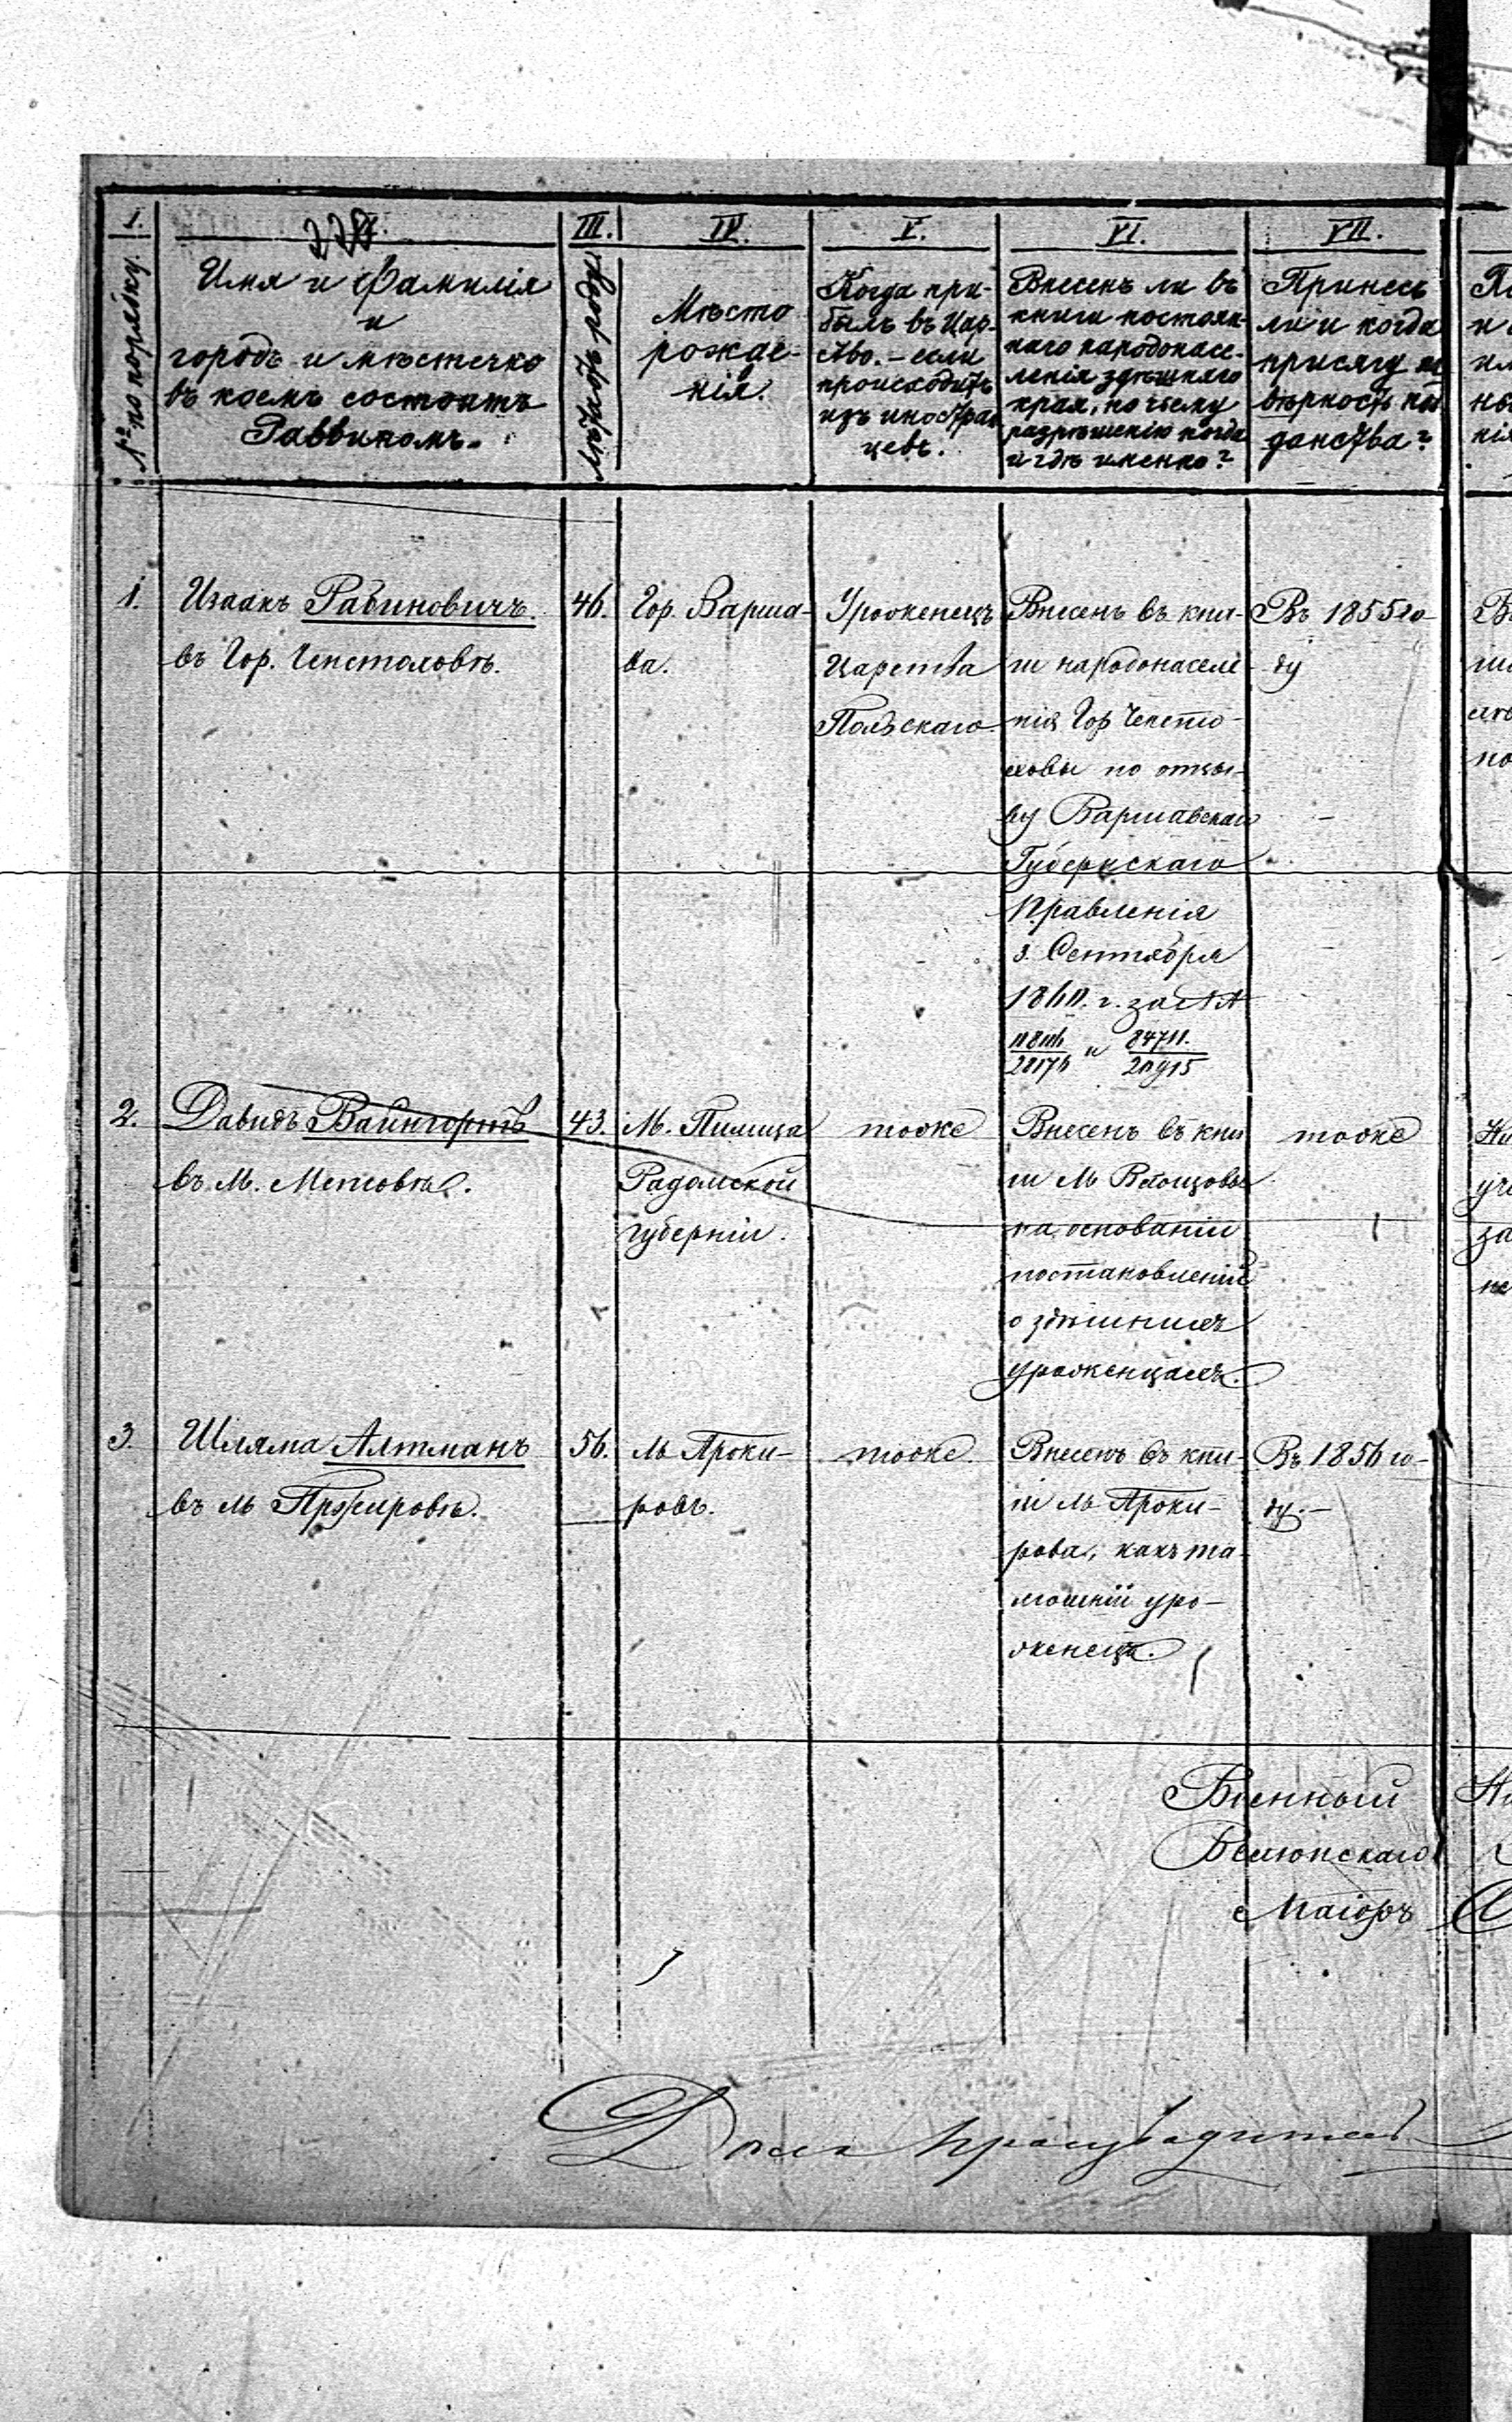 I.
III.
IV.
V.
VI.
VII.
№ по порядку.
Имя и Фамилія
и
городъ и мѣстечко
въ коемъ состоитъ
Раввиномъ.
Мѣсто
рожде-
нія.
Когда при-
былъ въ Цар-
ство. – если
происходитъ
изъ иностран
цевъ.
Внесенъ ли въ
книги постоян-
наго народонасе-
ленія здѣшняго
края, по чьему
разрѣшенію когда
и гдѣ именно?
Принесъ
ли и когда
присягу на
вѣрность под
данства?
1.
Изаакъ Рабиновичъ.
въ Гор. Ченстоховѣ.
46.
Гор. Варша-
ва.
Уроженецъ
Царства
Польскаго.
Внесенъ въ кни-
ги народонаселе-
нія Гор Ченсто-
ховы по отзы-
ву Варшавскаго
Губернскаго
Правленія
3. Сентября
1860. г. за №№
и
Въ 1855 го-
ду
2.
Давидъ Вайнгортъ
въ М. Мстовѣ.
43.
М. Пилица
Радомской
губерніи.
тоже
Внесенъ въ кни
ги М.
на основаніи
постановленій
о здѣшнихъ
уроженцахъ.
тоже
3.
Шляма Алтманъ
въ М Пржировѣ.
56.
М Пржи-
ровъ.
тоже.
Внесенъ въ кни-
ги М Пржи-
рова, какъ та-
мошній уро-
женецъ.
Въ 1856 го-
ду. –
Военный
Велюнскаго
Маіоръ
Дѣло производитель